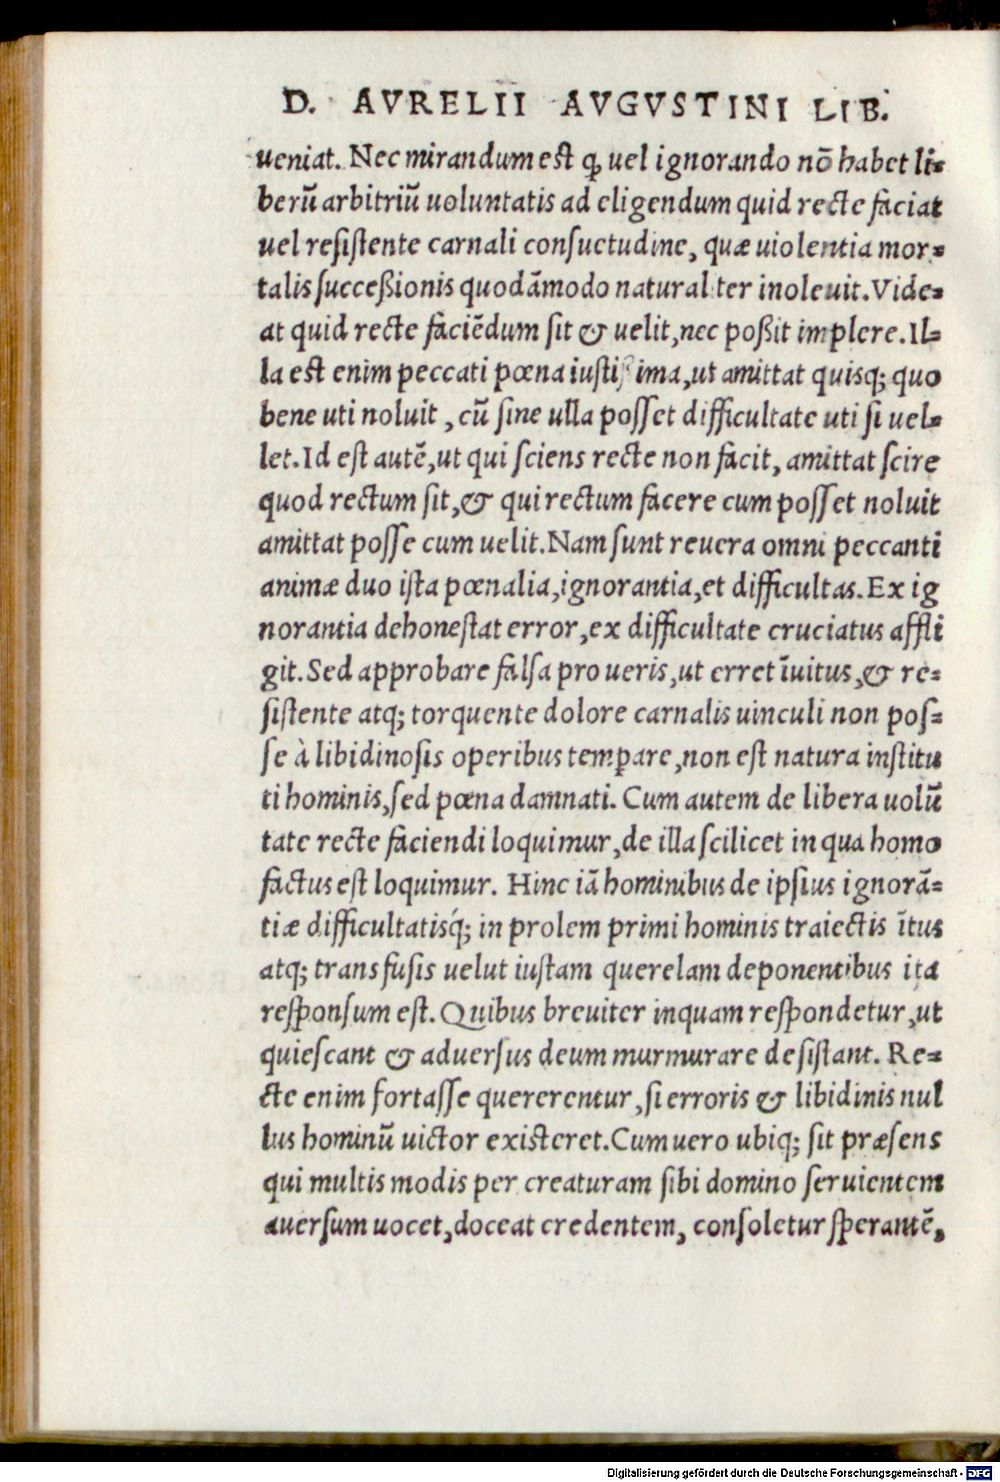 D. AVRELII AVGVSTINI LIB.
ueniat. Nec mirandum est ꝙ uel ignorando nō habet li=
berū arbitriū uoluntatis ad eligendum quid recte faciat
uel resistente carnali consuetudine, quæ uiolentia mor=
talis successionis quodāmodo natural ter inoleuit. Vide=
at quid recte faciēdum sit & uelit, nec possit implere. Il=
la est enim peccati pœna iustissima, ut amittat quisq; quo
bene uti noluit, cū sine ulla posset difficultate uti si uel=
let. Id est autē, ut qui sciens recte non facit, amittat scire
quod rectum sit, & qui rectum facere cum posset noluit
amittat posse cum uelit. Nam sunt reuera omni peccanti
animæ duo ista pœnalia, ignorantia, et difficultas. Ex ig
norantia dehonestat error, ex difficultate cruciatus affli
git. Sed approbare falsa pro ueris, ut erret īuitus, & re=
sistente atq; torquente dolore carnalis uinculi non pos=
se à libidinosis operibus temperare, non est natura institu
ti hominis, sed pœna damnati. Cum autem de libera uolū
tate recte faciendi loquimur, de illa scilicet in qua homo
factus est loquimur. Hinc iā hominibus de ipsius ignorā=
tiæ difficultatisq́; in prolem primi hominis traiectis ītus
atq; transfusis uelut iustam querelam deponentibus ita
responsum est. Quibus breuiter inquam respondetur, ut
quiescant & aduersus deum murmurare desistant. Re=
cte enim fortasse quererentur, si erroris & libidinis nul
lus hominū uictor existeret. Cum uero ubiq; sit præsens
qui multis modis per creaturam sibi domino seruientem
auersum uocet, doceat credentem, consoletur sperantē,
Digitalisierung gefördert durch die Deutsche Forschungsgemeinschaft - DFG